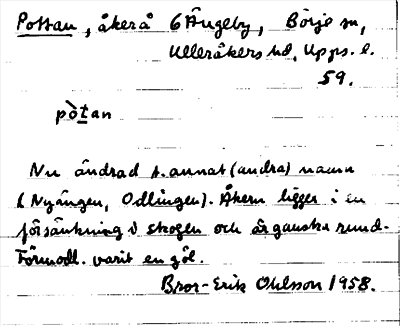 Pottan, åker å 6 Ängeby, Börje sn,
Ulleråkers hd, Upps. l.
59.
pòtan
Nu ändrad t. annat (andra) namn
(Nyängen, Odlingen). Åkern ligger i en
försänkning i skogen och är ganska rund.
Förmodl. varit en göl.
Bror-Erik Ohlsson 1958.